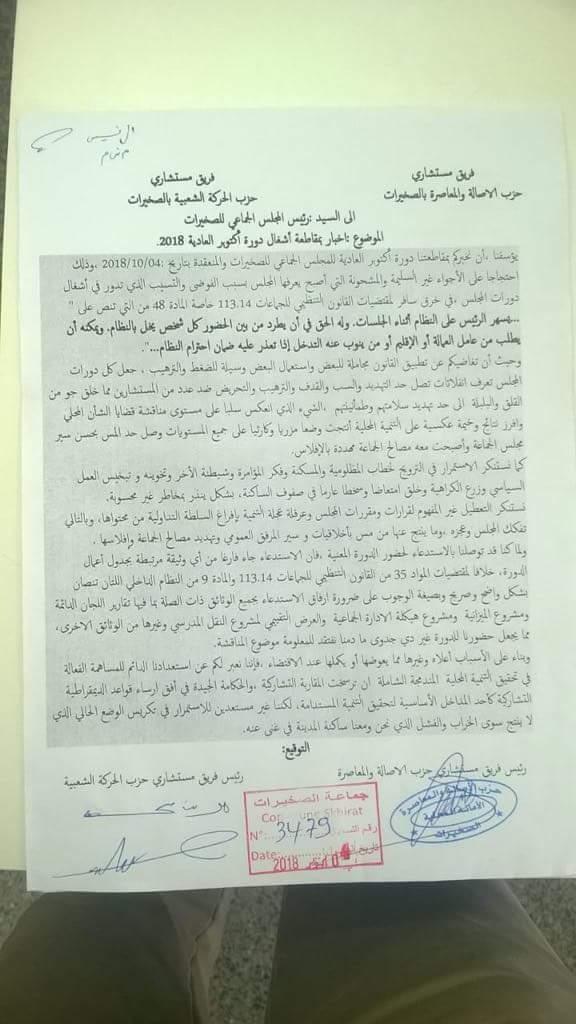 فريق مستشاري
حزب الاصالة والمعاصرة بالصخيرات
فريق مستشاري
حزب الحركة الشعبية بالصخيرات
الى السيد :رئيس المجلس الجماعي للصخيرات
الموضوع :اخبار بمقاطعة أشغال دورة أكتوبر العادية 2018.
يؤسفنا ،أن نخبركم بمقاطعتنا دورة أكتوبر العادية للمجلس الجماعي للصخيرات والمنعقدة بتاريخ :2018/10/04 ،وذلك
احتجاجا على الأجواء غير السليمة والمشحونة التي أصبح يعرفها المجلس بسبب الفوضى والتسيب الذي تدور في أشغال
دورات المجلس ،في خرق سافر لمقتضيات القانون التنظيمي للجماعات 113.14 خاصة المادة 48 من التي تنص على "
...يسهر الرئيس على النظام أثناء الجلسات. وله الحق في أن يطرد من بين الحضور كل شخص يخل بالنظام. ويمكنه أن
يطلب من عامل العمالة أو الإقليم أو من ينوب عنه التدخل إذا تعذر عليه ضمان احترام النظام...".
وحيث أن تغاضيكم عن تطبيق القانون مجاملة للبعض واستعمال البعض وسيلة للضغط والترهيب ، جعل كل دورات
المجلس تعرف انفلاتات تصل حد التهديد والسب والقدف والترهيب والتحريض ضد عدد من المستشارين مما خلق جو من
القلق والبلبلة الى حد تهديد سلامتهم وطمأنيتهم ،الشيء الذي انعكس سلبا على مستوى مناقشة قضايا الشأن المحلي
وافرز نتائج وخيمة عكسية على التنمية المحلية أنتجت وضعا مزريا وكارثيا على جميع المستويات وصل حد المس بحسن سير
مجلس الجماعة وأصبحت معه مصالح الجماعة مهددة بالإفلاس.
كما نستنكر الاستمرار في الترويج لخطاب المظلومية والمسكنة وفكر المؤامرة وشيطنة الأخر وتخوينه و تبخيس العمل
السياسي وزرع الكراهية وخلق امتعاضا وسخطا عارما في صفوف الساكنة، بشكل ينذر بمخاطر غير محسوبة.
نستنكر التعطيل غير المفهوم لقرارات ومقررات المجلس وعرقلة عجلة التنمية بإفراغ السلطة التداولية من محتواها، وبالتالي
تفكك المجلس وعجزه ،وما ينتج عنها من مس بأخلاقيات و سير المرفق العمومي وتهديد مصالح الجماعة وإفلاسها .
ولما كنا قد توصلنا بالاستدعاء لحضور الدورة المعنية ،فان الاستدعاء جاء فارغا من أي وثيقة مرتبطة بجدول أعمال
الدورة، خلافا لمقتضيات المواد 35 من القانون التنظيمي للجماعات 113.14 والمادة 9 من النظام الداخلي اللتان تنصان
بشكل واضح وصريح وبصيغة الوجوب على ضرورة ارفاق الاستدعاء بجميع الوثائق ذات الصلة بما فيها تقارير اللجان الدائمة
ومشروع الميزانية ومشروع هيكلة الادارة الجماعية والعرض التقييمي لمشروع النقل المدرسي وغيرها من الوثائق الاخرى،
مما يجعل حضورنا للدورة غير دي جدوى ما دمنا نفتقد للمعلومة موضوع المناقشة.
وبناء على الأسباب أعلاه وغيرها مما يعوضها أو يكملها عند الاقتضاء ،فإننا نعبر لكم عن استعدادنا الدائم للمساهمة الفعالة
في تحقيق التنمية المحلية المندمجة الشاملة ان ترسخت المقاربة التشاركية ،والحكامة الجيدة في أفق ارساء قواعد الديمقراطية
التشاركة كأحد المداخل الأساسية لتحقيق التنمية المستدامة، لكننا غير مستعدين للاستمرار في تكريس الوضع الحالي الذي
لا ينتج سوى الخراب والفشل الذي نحن ومعنا ساكنة المدينة في غنى عنه.
التوقيع:
رئيس فريق مستشاري حزب الاصالة والمعاصرة
رئيس فريق مستشاري حزب الحركة الشعبية
حزب الأصالة والمعاصرة
الصخيرات
جماعة الصخيرات
Commune Skhirat
N°: 3479
Date: 04 2018